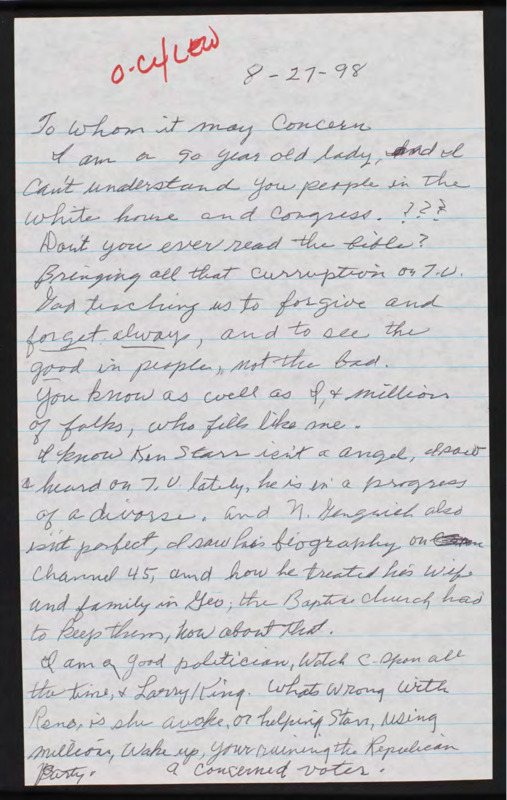 8-27-98
To whom it may Concern
I am a 90 year old lady, and I
Can't understand you people in the
White house and Congress. ???
Don't you ever read the bible?
Bringing all that curruption on T.V.
God teaching us to forgive and
forget always, and to see the
good in people, not the bad.
You know as well as I, & million
of folks, who fills like me.
I know Ken Starr isn't a angel, I saw
& heard on T.V. lately, he is in a progress
of a divorse. and N. Gengrich also
isn't perfect, I saw his biography on
Channel 45, and how he treated his wife
and family in Geo; the Baptise church had
to keep them, how about that.
I am a good politician, Watch C-Span all
the time, & Larry King. Whats Wrong With
Reno, is she awoke, or helping Starr, using
million, Wake up, your ruining the Repulican
Party. a Concerned voter.